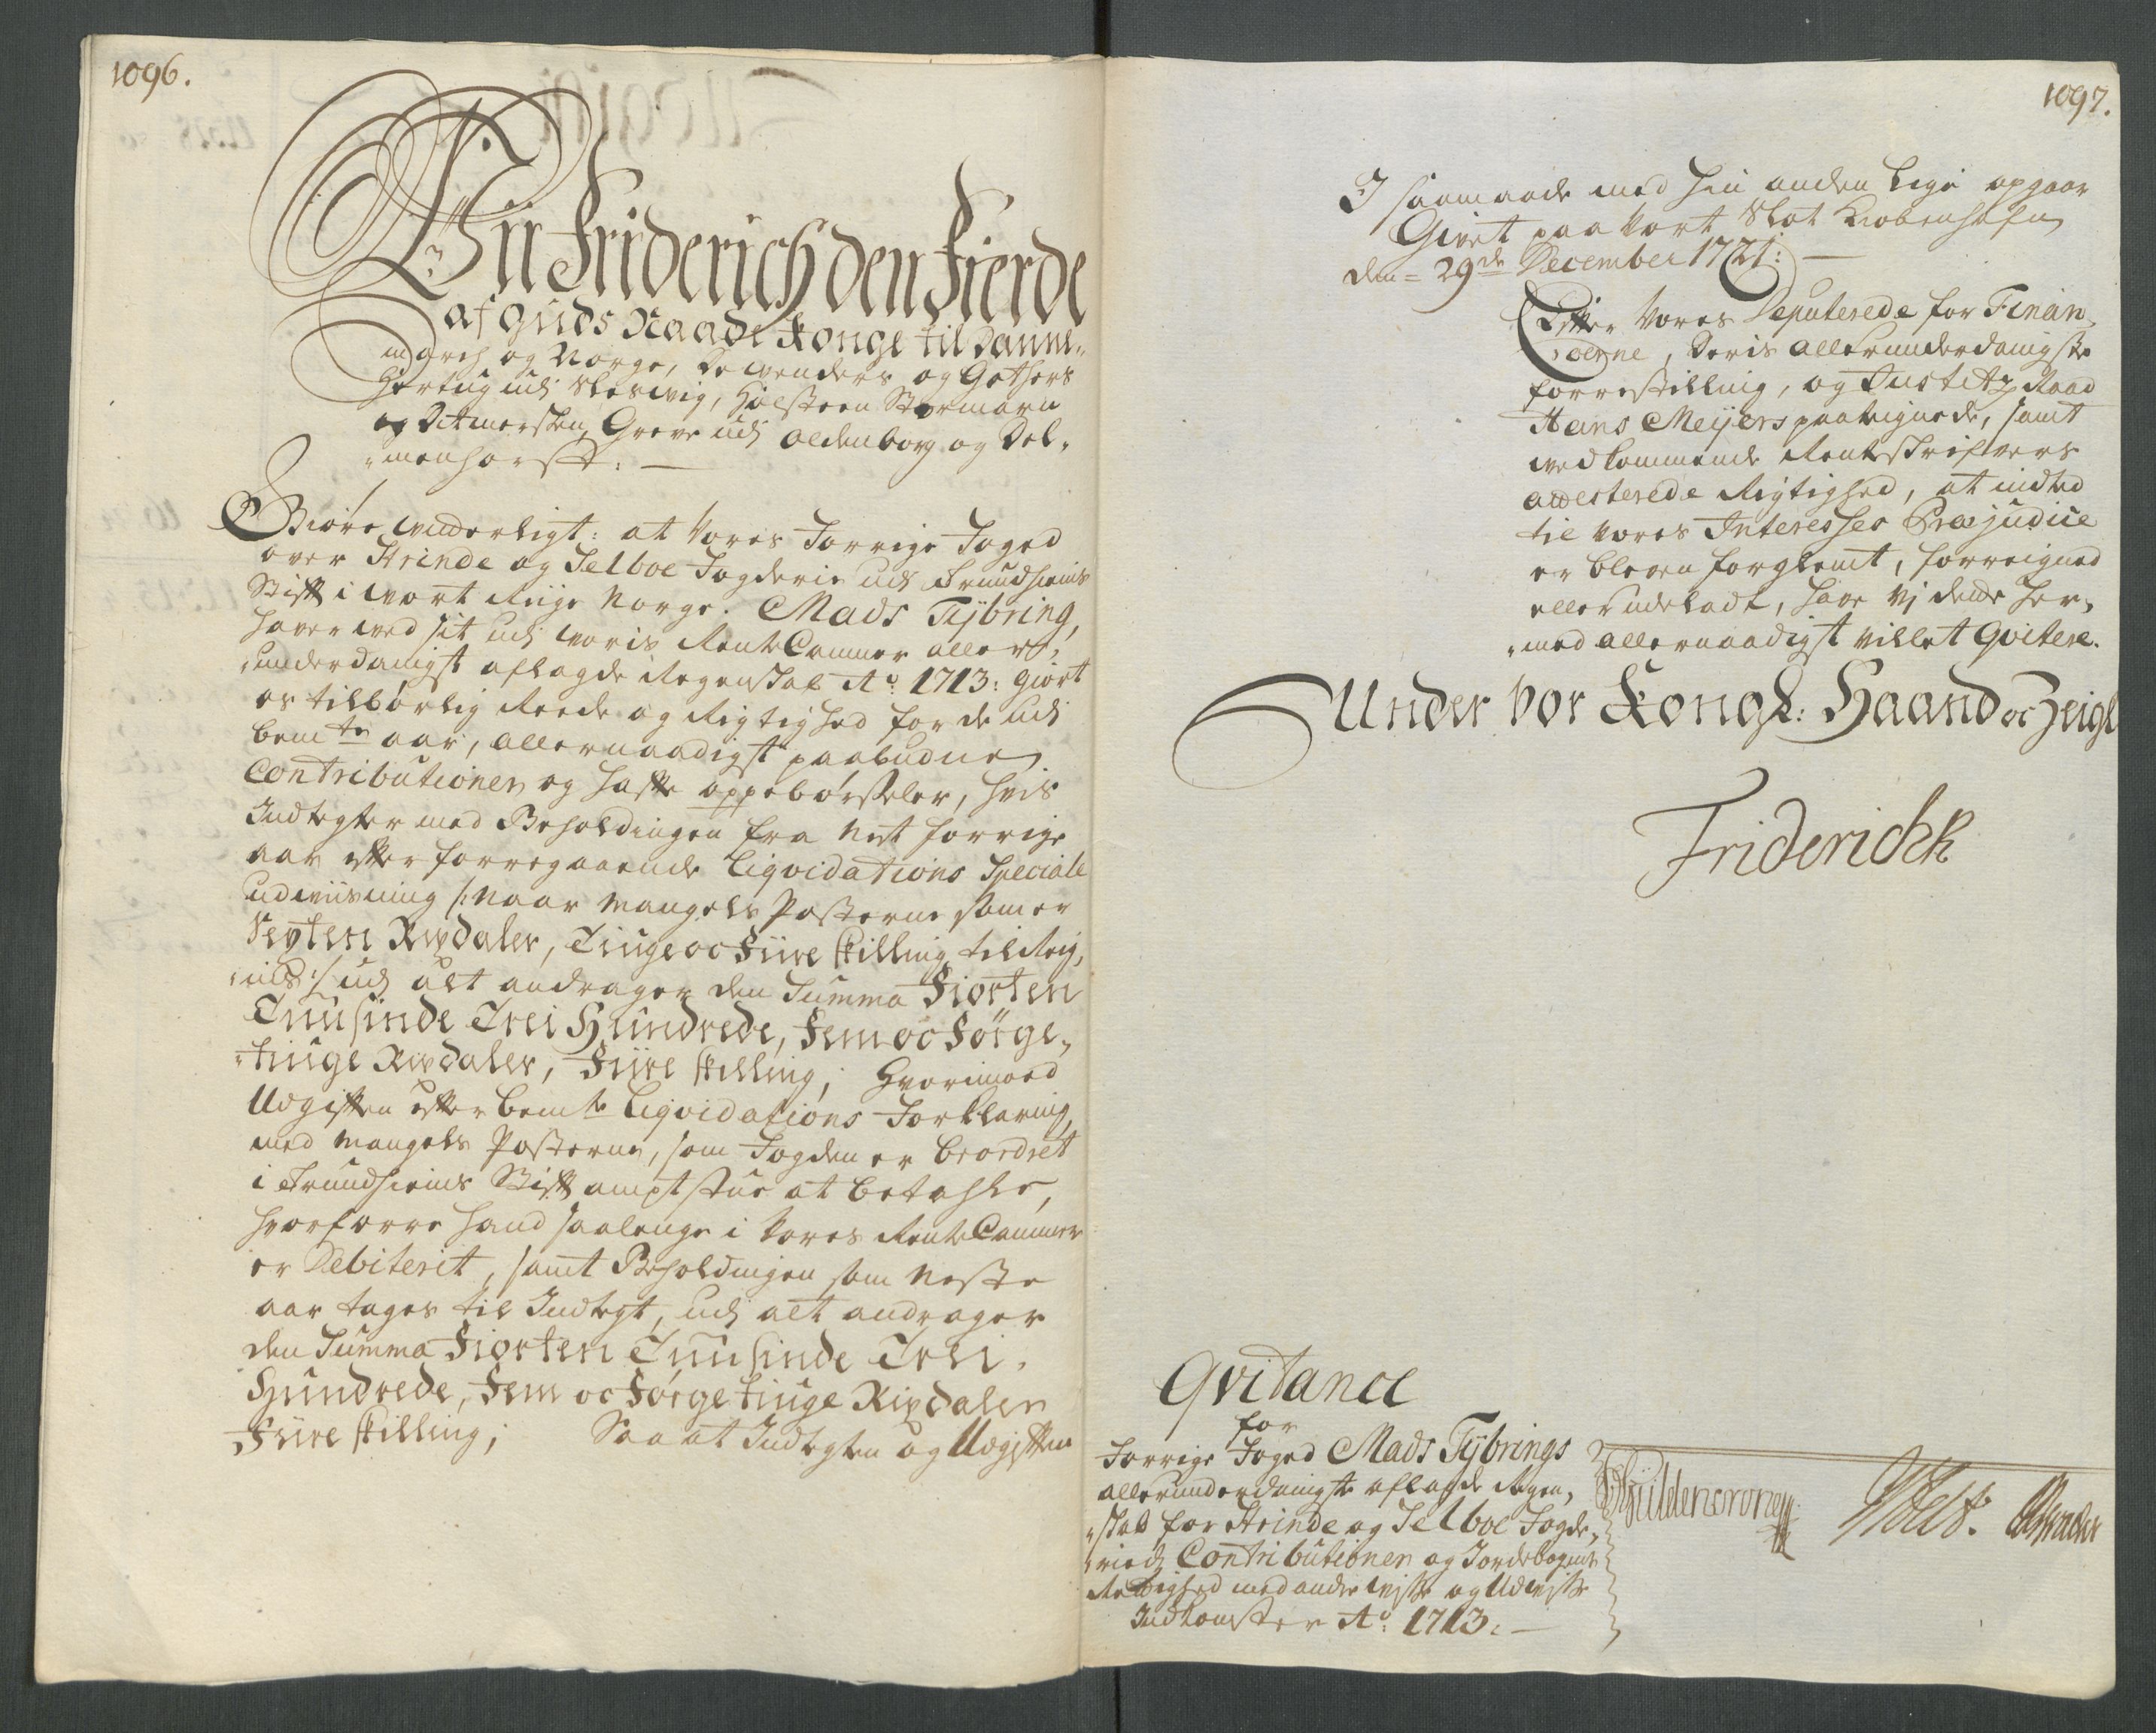 1096.
Wii Friderich den Fierde
af Guds Naade Konge til Danne-
march og Norge, de Wenders og Gothers
Hertug udi Slesvig, Holsteen Stormarn
og Ditmersken, Greve udi Oldenborg og Del-
-menhorst: —
Giøre witterligt: at Vores Forrige Foged
over Strinde og Selboe Fogderie udi Trundhiems
Stift i wort Riige Norge. Mads Tÿbring,
haver wed sit udi woris RenteCammer aller-
-underdanigst aflagde Regenskab Aº: 1713: giort
os tilbørlig Reede og Rigtighed for de udi
bemte aar, allernaadigst paabudne
Contributioner og haste oppebørsseler, hvis
Indtegter med Beholdingen fra Nest forrige
aar efter forregaaende Liqvidations Speciale
udwiisning /: Naar Mangels Posterne som er
Syten Rixdaler, Tiuge oc Fiire skilling til Reig-
-nis :/ udi alt andrager den Summa Fiorten
Tuusinde Trei Hundrede, Fem oc Førge-
-tiuge Rixdaler, Fiire skilling; Hvorimoed
Udgiften efter bemte Liqvidations Forklaring,
med Mangels Posterne, som Fogden er beordret
i Trundhiems Stift amptstue at betahle,
hvorforre hand saalenge i Vores RenteCammer
er Debiterit, samt Beholdingen som Neste
aar tages til Indtegt, udi alt andrager
den Summa Fiorten Tuusinde Trei
Hundrede, Fem oc Førgetiuge Rixdaler
Fiire skilling; Saa at Indtegten og Udgiften
1097.
I saamaade med hin anden lige opgaar
Givet paa Vort Slot Kiøbenhafn
den = 29de December 1721: —
Efter Vores Deputerede for Finan-
-cerne, Deris allerunderdanigste
forrestilling, og Justitz Raad
Hans Meÿers paategnede, samt
wedkommende Renteskrifvers
attesterede Rigtighed, at intet
til Vores Interesses Præjudice
er bleven forglemt, forreignet
eller udeladt, have Vj dette her-
-med allernaadigst villet Qvitere.
Under Vor Kongl: Haand oc Zeigl
Friderich R
Qvitance
for
Forrige Foged Mads Tÿbrings
allerunderdanigste aflagde Regen-
-skab for Strinde og Selboe Fogde-
-ries Contributioner og Jordebogens
Rettighed med andre Visse og Uvisse
Indkomster Aº: 1713: —
Güldencrone